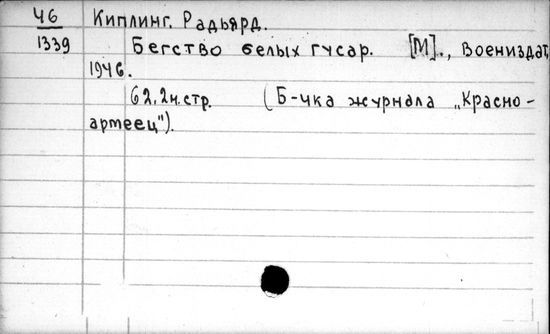 46 Киплинг, Радьярд.
1339 Бегство белых гусар. [М]., Воениздат,
1946.
62,2н.стр. (Б-чка журнала „Красно-
армеец").